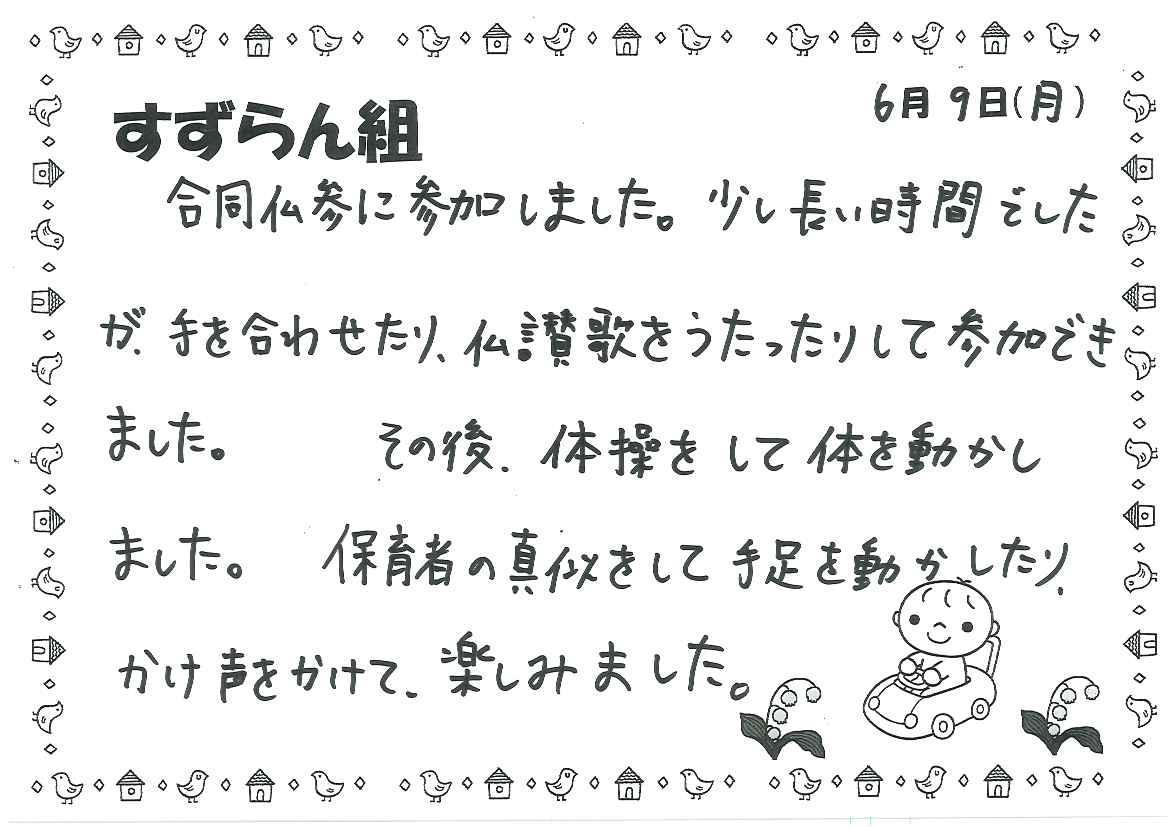 すずらん組
6月9日(月)
合同仏参に参加しました。少し長い時間でした
が、手を合わせたり、仏讃歌をうたったりして参加でき
ました。 その後、体操をして体を動かし
ました。 保育者の真似をして手足を動かしたり、
かけ声をかけて、楽しみました。